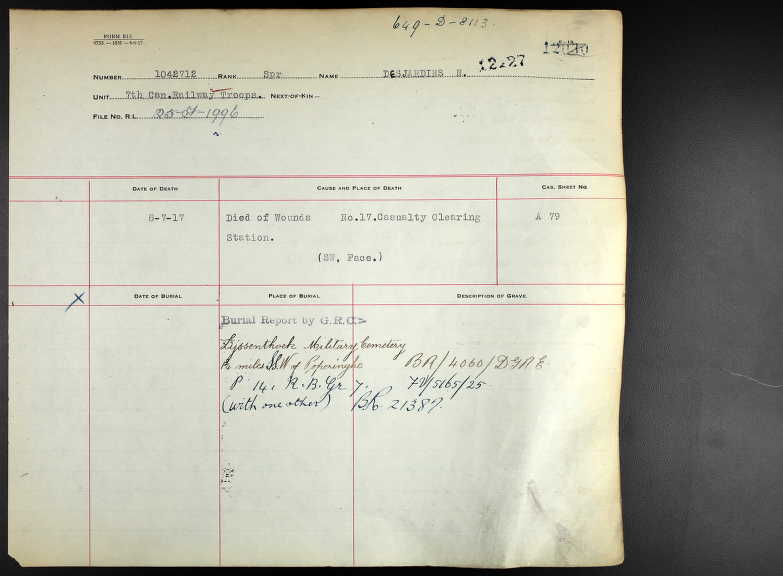 649-D-8113.
FORM
12427
NUMBER 1042712 RANK Spr NAME DESJARDINS N.
UNIT 7th Can.Railway Troops. NEXT-OF-KIN—
FILE NO. R.L. 25-D-1996
DATE OF DEATH CAUSE AND PLACE OF DEATH CAS. SHEET NO.
8-7-17 Died of Wounds No.17.Casualty Clearing A 79
Station.
(SW. Face.)
X DATE OF BURIAL PLACE OF BURIAL DESCRIPTION OF GRAVE.
Burial Report by G.R.C.
Lijssenthoek Military Cemetery
miles S.S.W of Poperinghe BR/4060/DGRE
P 14, R.B. Gr 7. FV/5165/25
(with one other) BR 21387.